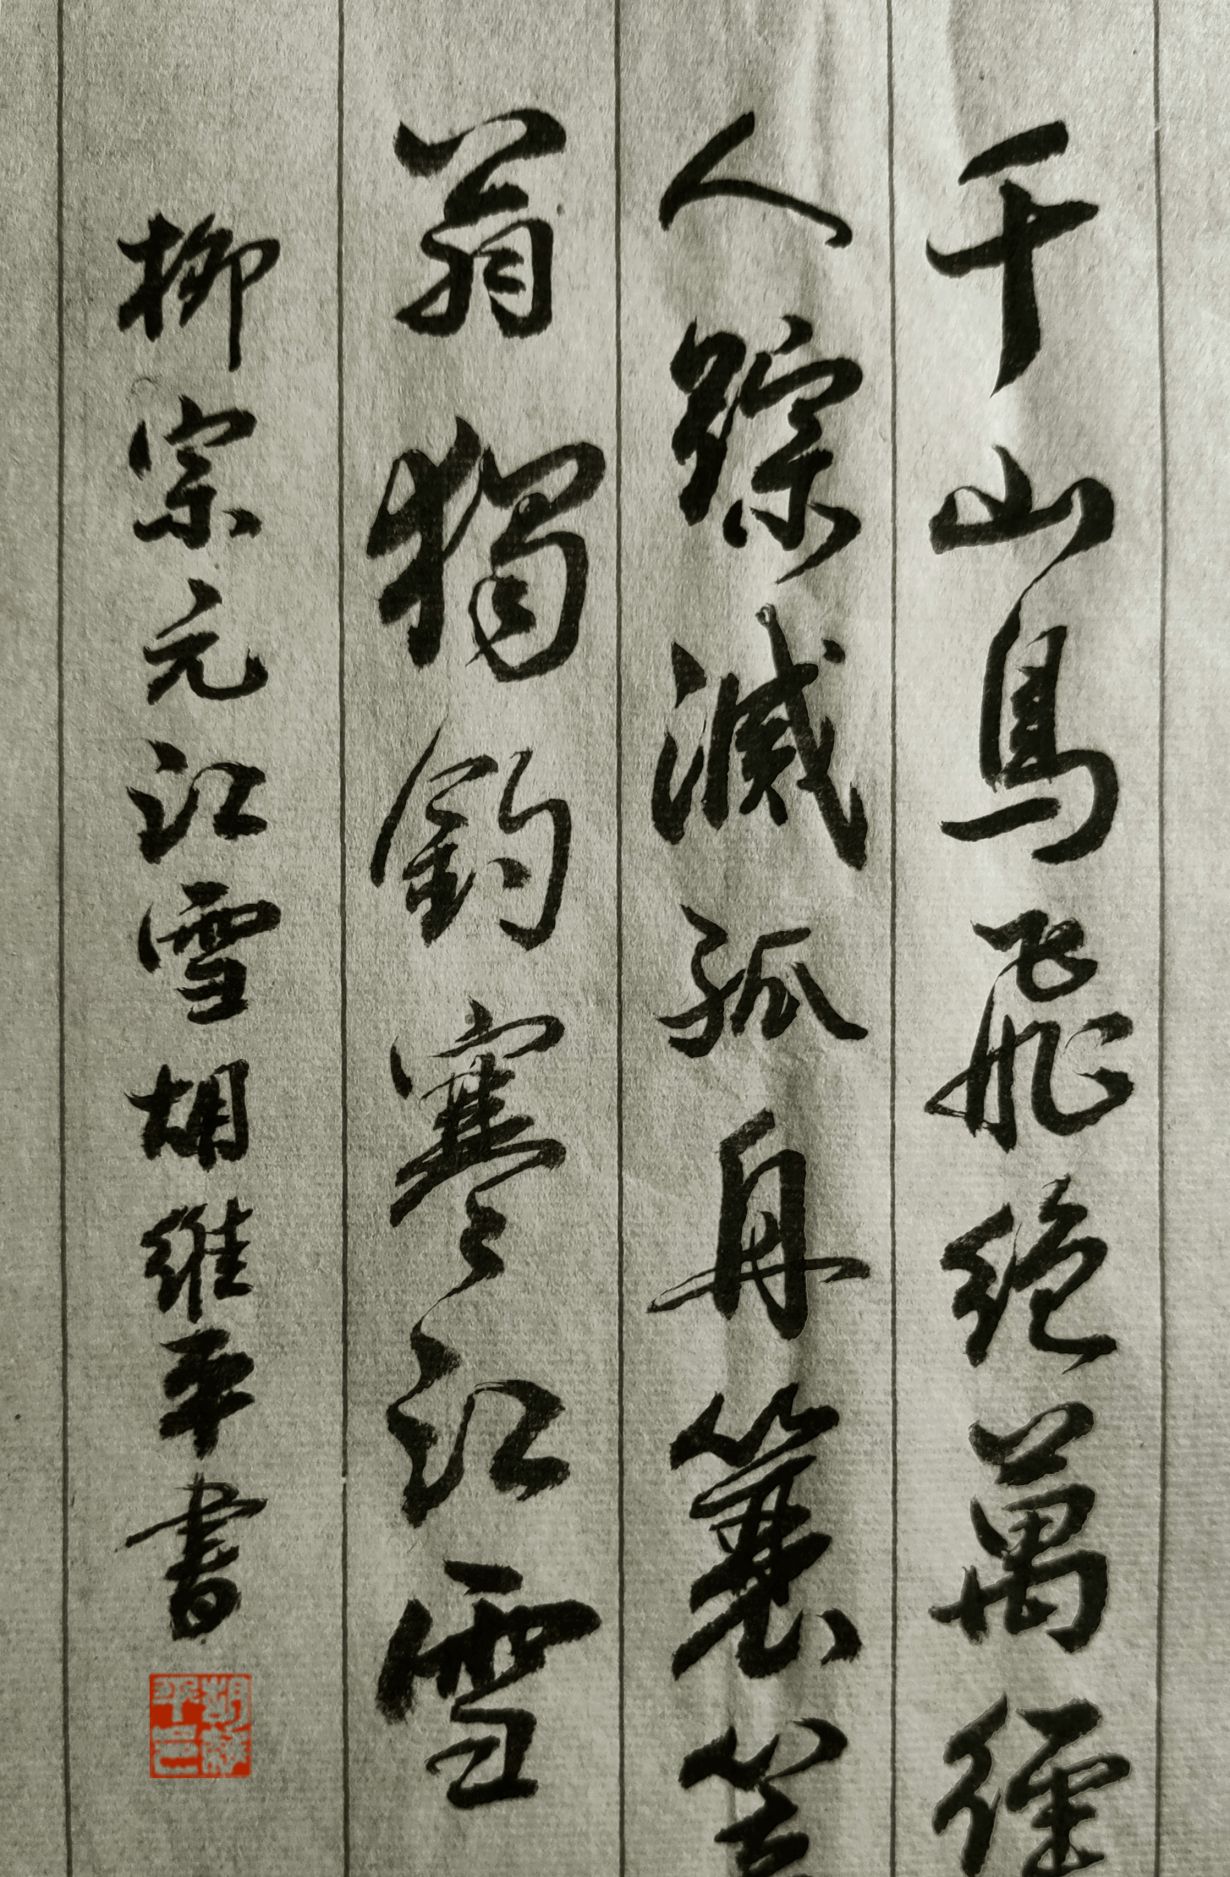 千山鳥飛絕萬徑
人踪滅孤舟簑笠
翁獨釣寒江雪
柳宗元江雪胡維平書